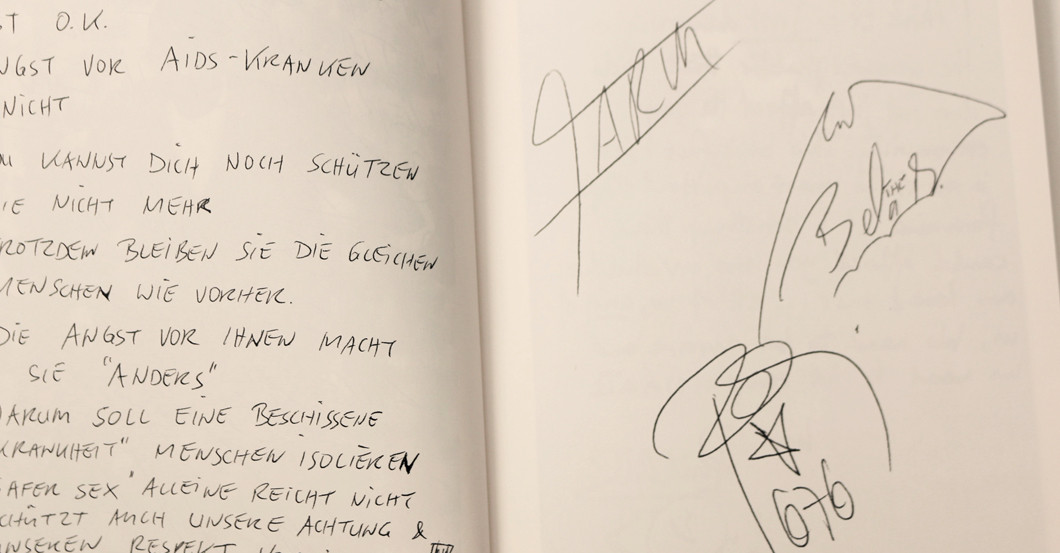 ST O.K.
NGST VOR AIDS-KRANKEN
NICHT
KANNST DICH NOCH SCHÜTZEN
IE NICHT MEHR
ROTZDEM BLEIBEN SIE DIE GLEICHEN
MENSCHEN WIE VORHER.
DIE ANGST VOR IHNEN MACHT
SIE "ANDERS"
ARUM SOLL EINE BESCHISSENE
KRANKHEIT" MENSCHEN ISOLIEREN
AFER SEX' ALLEINE REICHT NICHT
CHÜTZT AUCH UNSERE ACHTUNG &
NSEREN RESPEKT
676